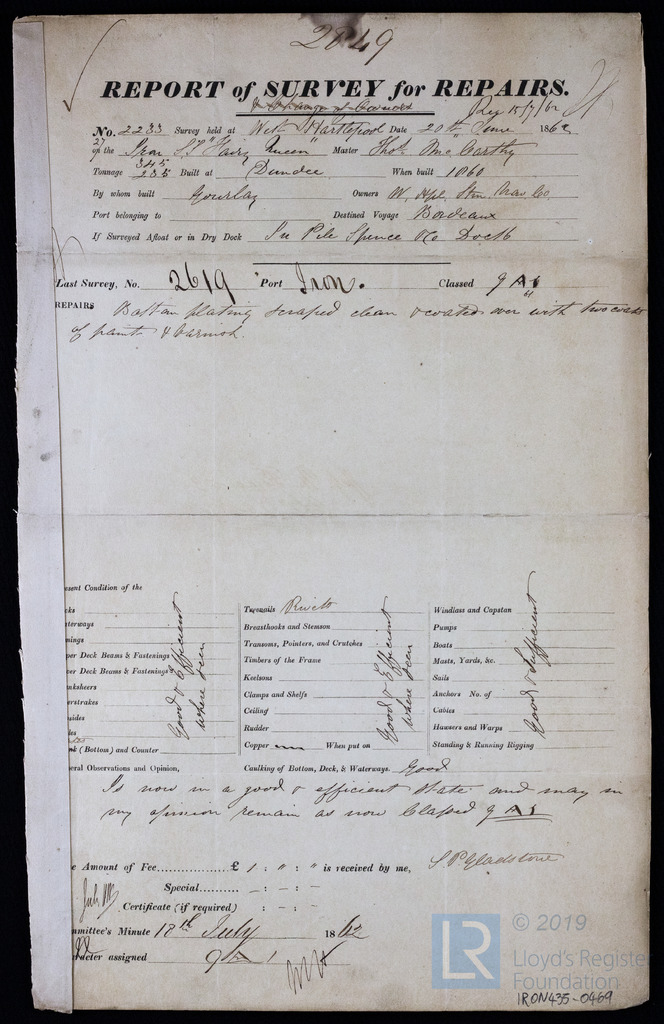 2649
REPORT of SURVEY for REPAIRS.
& Change of Owners
Rec 15/7/62
No. 2233 Survey held at West Hartlepool Date 20th June 1862
27 on the Iron S.S "Fairy Queen" Master Thos. Mc Carthy
Tonnage 345 235 Built at Dundee When built 1860
By whom built Gourlay Owners W. Hpl. Stm. Nav. Co.
Port belonging to Destined Voyage Bordeaux
If Surveyed Afloat or in Dry Dock In Pile Spence & Co Dock
Last Survey, No. 2619 Port Iron. Classed 9 A1
61
REPAIRS Bottom plating scraped clean & coated over with two coats
of paint & varnish.
esent Condition of the
cks
terways
nings
per Deck Beams & Fastenings
wer Deck Beams & Fastenings
nksheers
erstrakes
sides
les
nk (Bottom) and Counter
Good & Efficient
where seen
Treenails Rivets
Breasthooks and Stemson
Transoms, Pointers, and Crutches
Timbers of the Frame
Keelsons
Clamps and Shelfs
Ceiling
Rudder
Copper When put on
Good & Efficient
where seen
Windlass and Capstan
Pumps
Boats
Masts, Yards, &c.
Sails
Anchors No. of
Cables
Hawsers and Warps
Standing & Running Rigging
Good & Sufficient
eral Observations and Opinion, Caulking of Bottom, Deck, & Waterways. Good
Is now in a good & efficient state and may in
my opinion remain as now Classed 9 A1
e Amount of Fee................ £ 1 : " : " is received by me, S. P. Gladstone
Special.......... - : - : -
Certificate (if required) : - : -
mmittee's Minute 18th July 1862
racter assigned 9 A 1
© 2019
LR
Lloyd's Register
Foundation
IRON435-0469